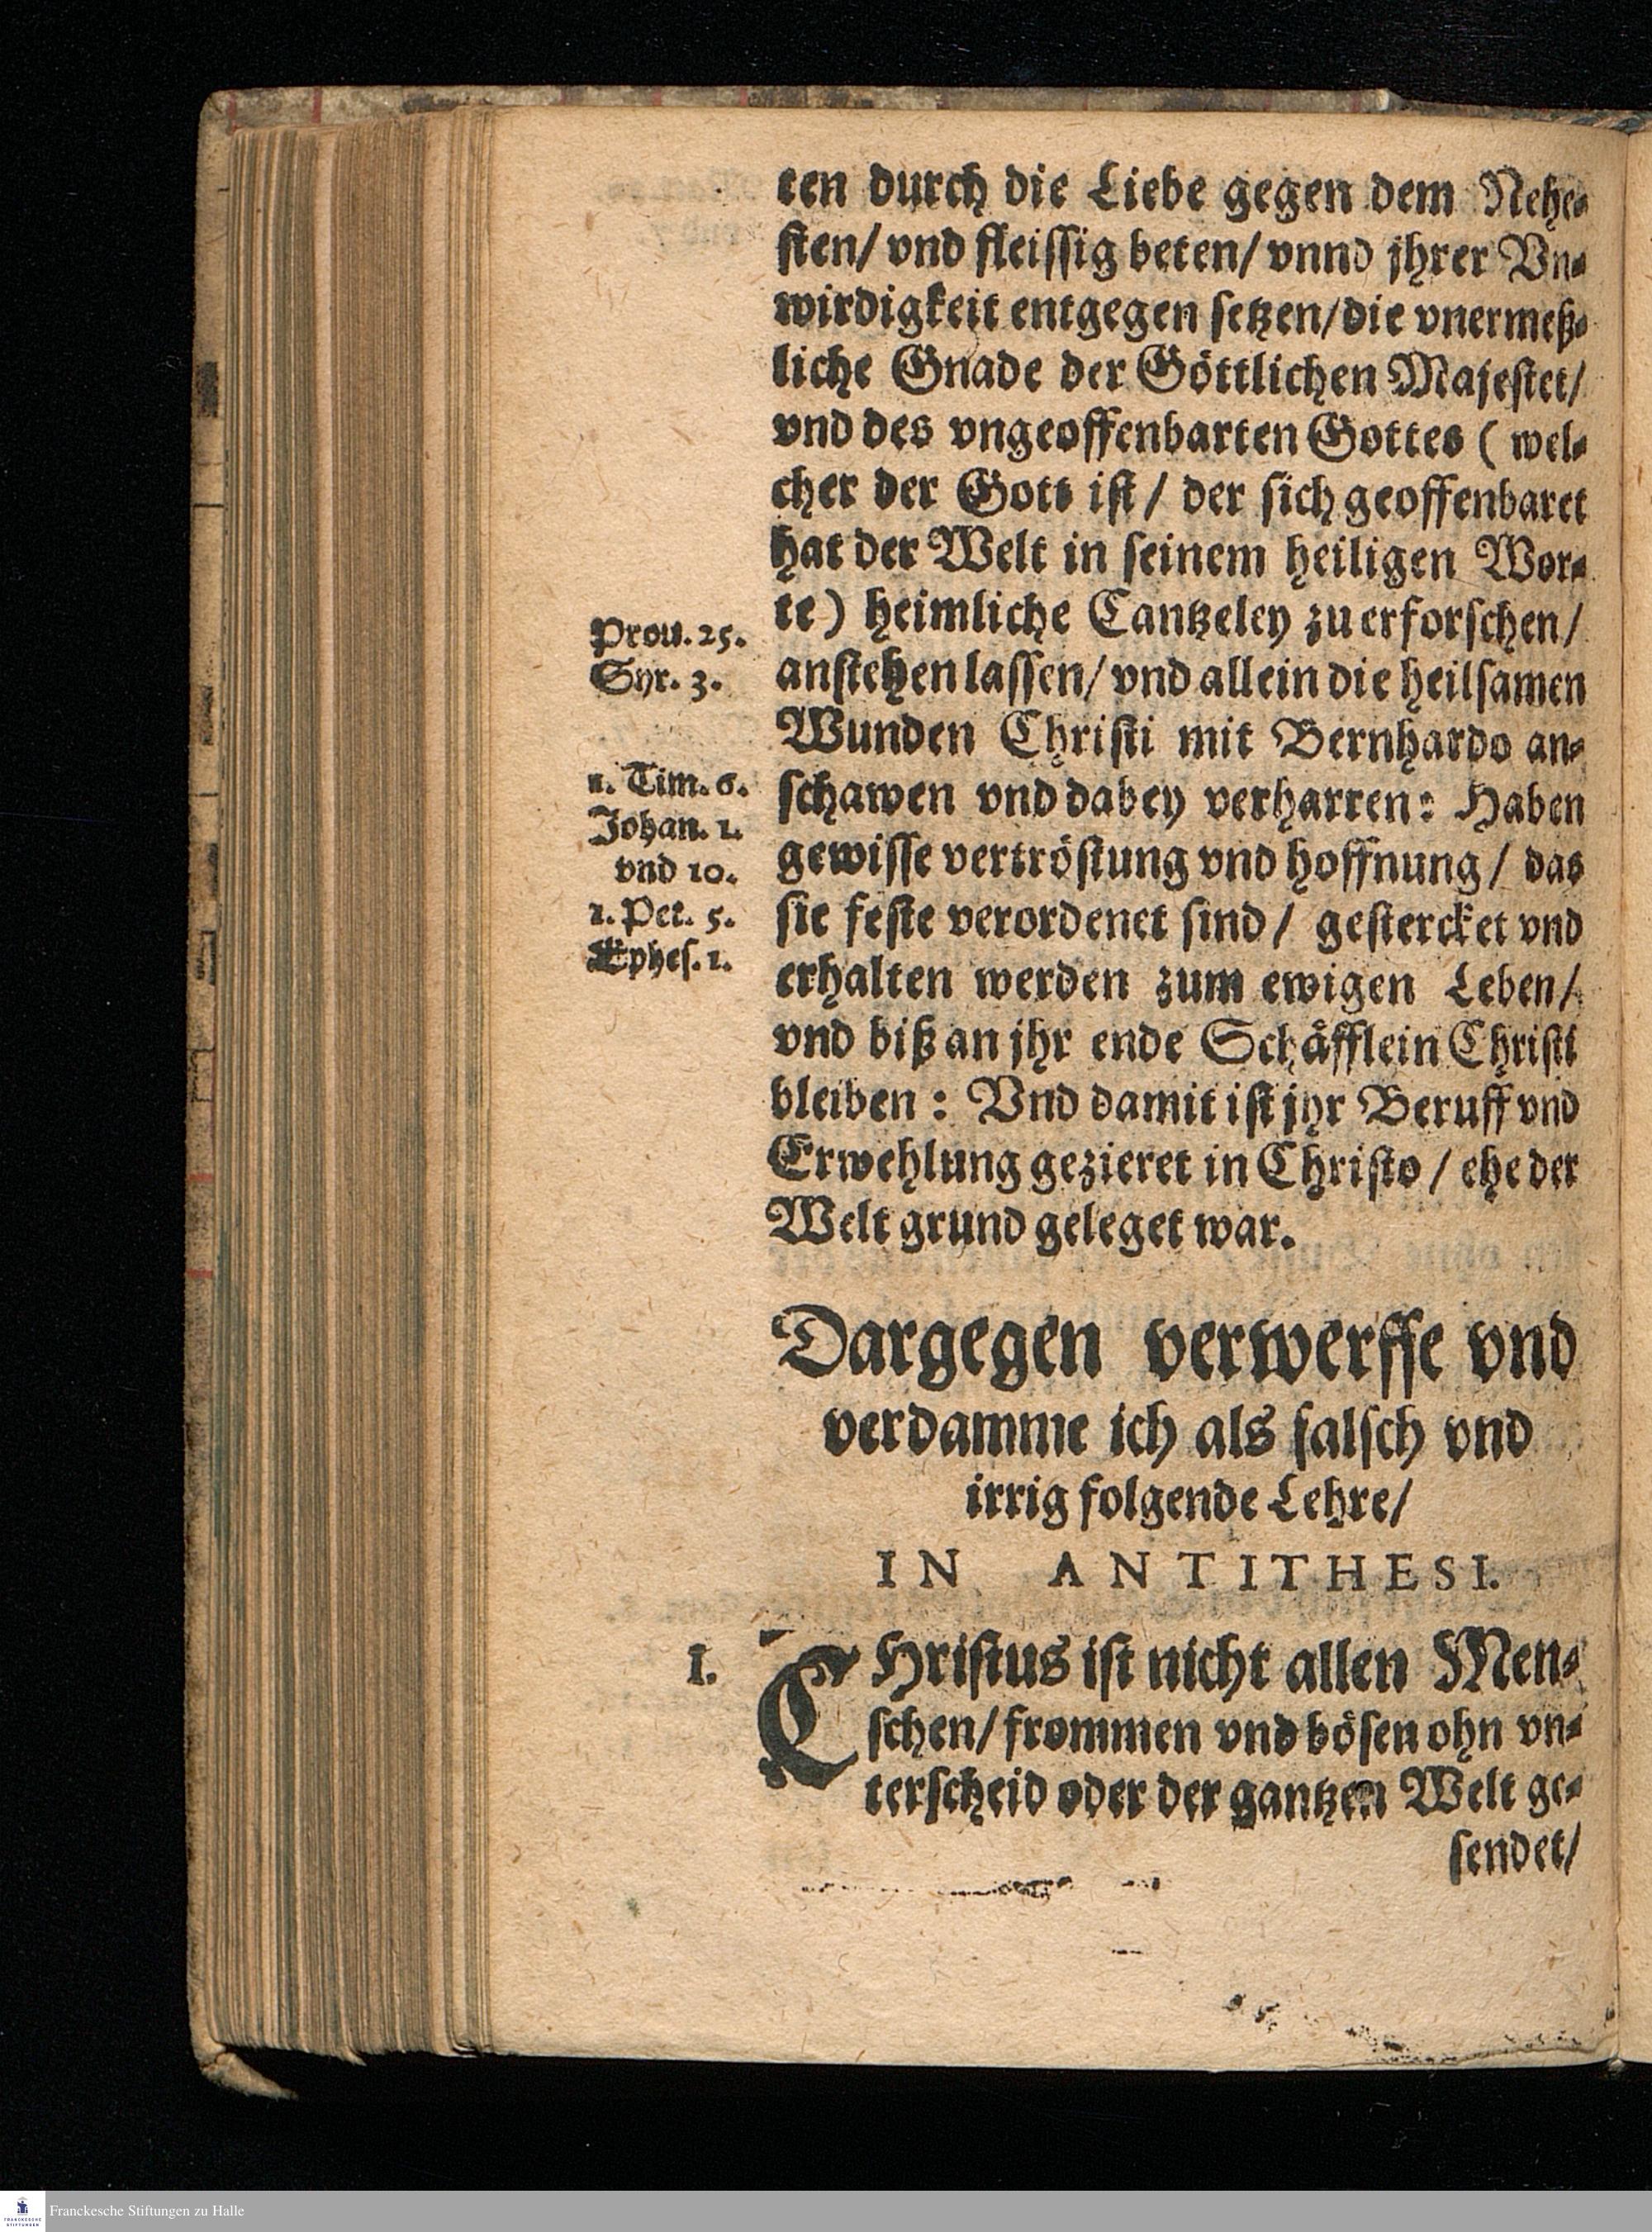 ten durch die Liebe gegen dem Nehe⸗
sten/ vnd fleissig beten/ vnnd jhrer Vn⸗
wirdigkeit entgegen setzen/ die vnermeß⸗
liche Gnade der Göttlichen Majestet/
vnd des vngeoffenbarten Gottes ( wel⸗
cher der Gott ist / der sich geoffenbaret
hat der Welt in seinem heiligen Wor⸗
te) heimliche Cantzeley zu erforschen/
Prou. 25.
anstehen lassen/ vnd allein die heilsamen
Syr. 3.
Wunden Christi mit Bernhardo an⸗
schawen vnd dabey verharren: Haben
1. Tim. 6.
Johan. 1.
gewisse vertröstung vnd hoffnung / das
vnd 10.
sie feste verordenet sind / gestercket vnd
1. Pet. 5.
erhalten werden zum ewigen Leben/
Ephes. 1.
vnd biß an jhr ende Schäfflein Christi
bleiben : Vnd damit ist jhr Beruff vnd
Erwehlung gezieret in Christo / ehe der
Welt grund geleget war.
Dargegen verwerffe vnd
verdamme ich als falsch vnd
irrig folgende Lehre/
IN ANTITHESI.
I.
CHristus ist nicht allen Men⸗
schen/ frommen vnd bösen ohn vn⸗
terscheid oder der gantzen Welt ge⸗
sendet/
Franckesche Stiftungen zu Halle